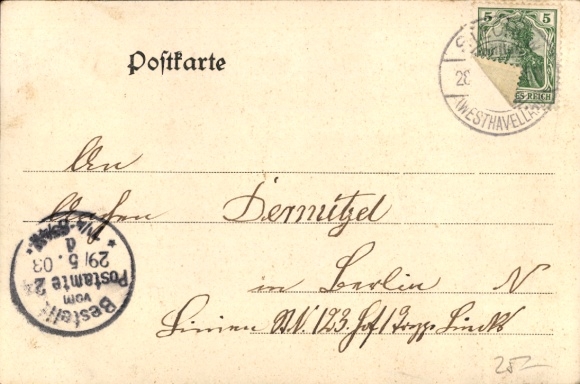 Postkarte
5 5
S-REICH
28
(WESTHAVELLAND
An
Dermitzel
in Berlin N
Linien Str. 123. Hof 1 Trepp. Links
Bestellt
vom
Postamte 24
29/5.03
25-